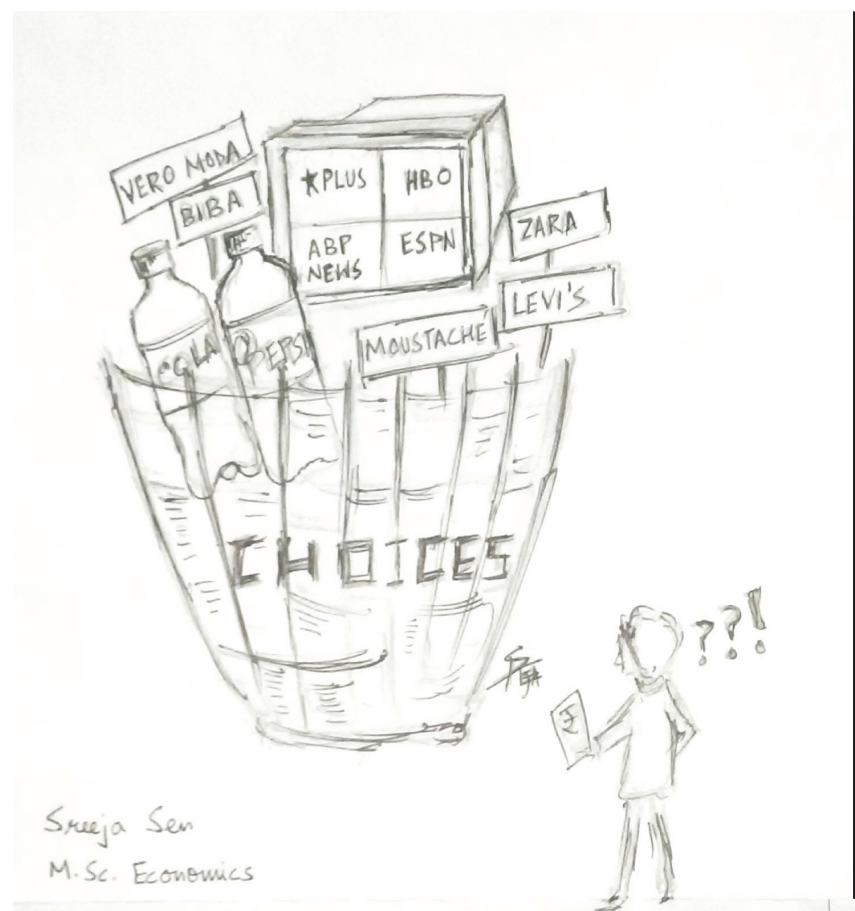 VERO MODA
BIBA
★PLUS
HBO
ABP
NEWS
ESPN
ZARA
LEVI'S
MOUSTACHE
COLA
PEPSI
CHOICES
???!
₹
Sreeja Sen
M.Sc. Economics